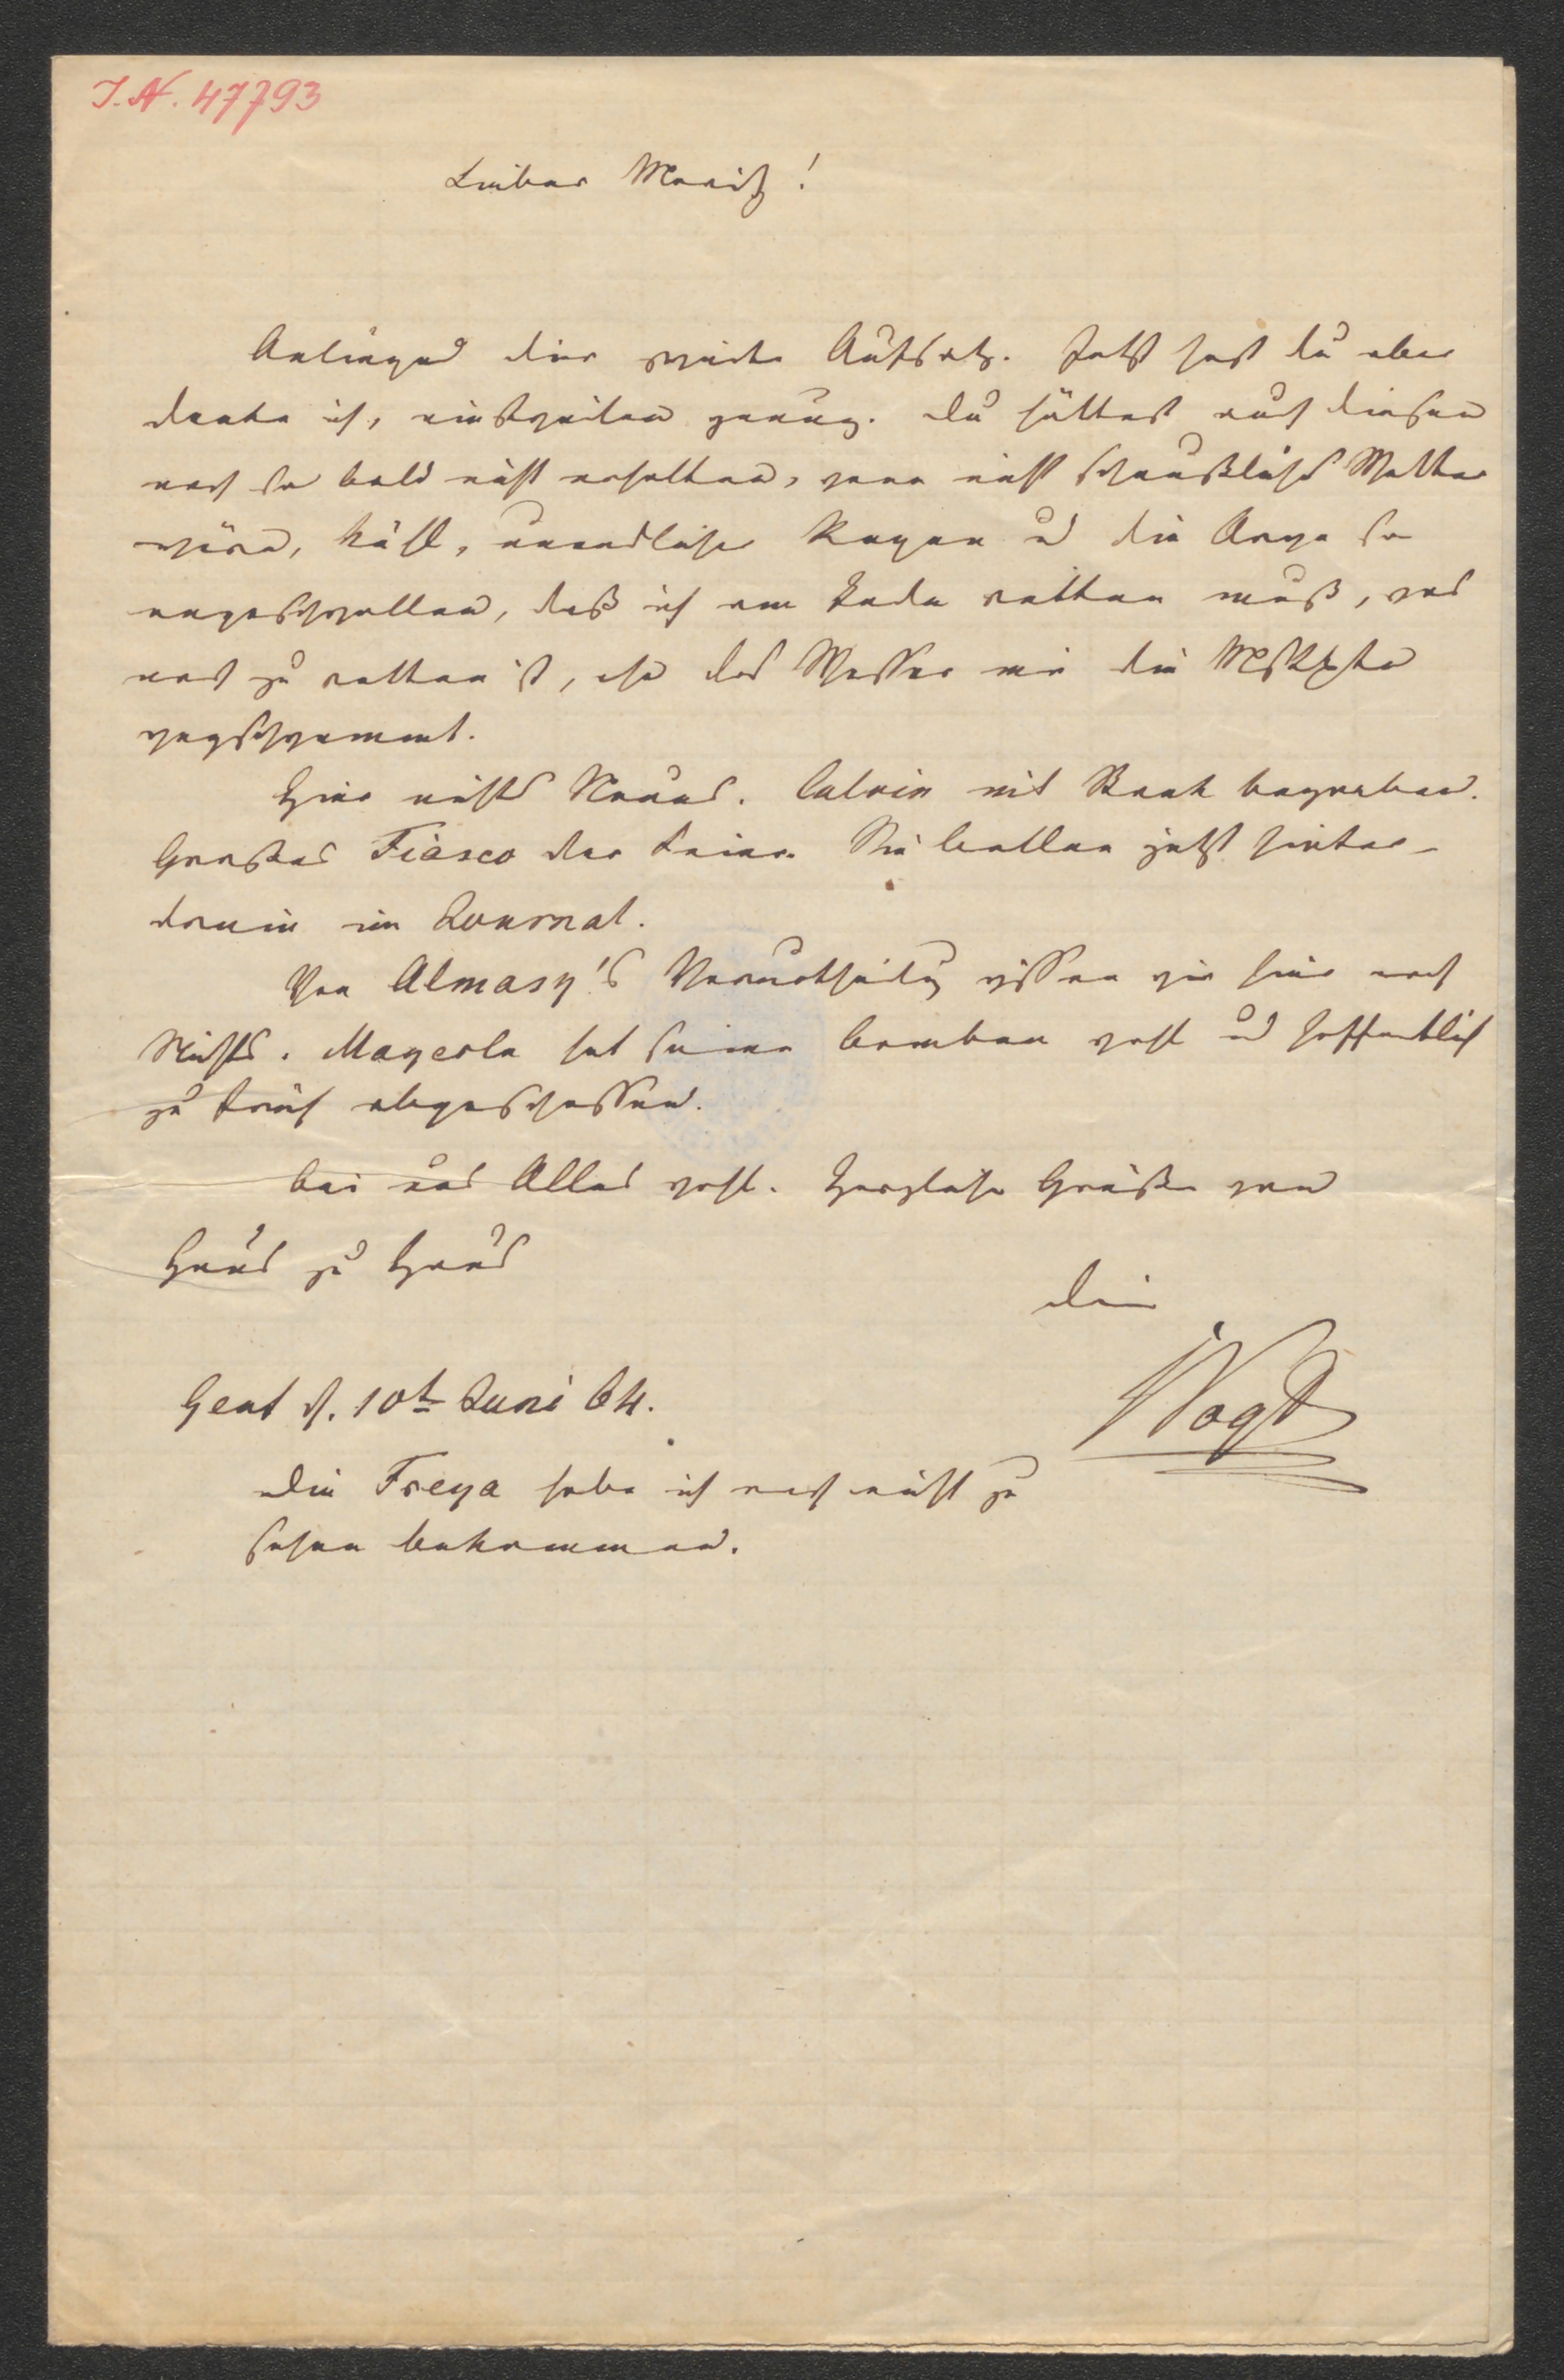 I. N. 47793
Lieber Moritz!
Anliegend der zweite Aufsatz. Jetzt hast du aber
denke ich, einstweilen genug. Du hättest auch diesen
noch so bald nicht erhalten, wenn nicht scheußliches Wetter
wäre, Kälte, unendlicher Regen u die Arve so
angeschwollen, daß ich am Ende retten muß, was
noch zu retten ist, ehe das Wasser mir die
wegschwemmt.
Hier nichts Neues. Calvin mit Stank begraben.
Großes Fiasco der Feier. Sie bellen jetzt hinter-
drein im Journal.
Von Almasy's Verurtheilg wissen wir hier noch
Nichts. Mayerla hat seine Bomben wohl u hoffentlich
zu früh abgeschossen.
Bei uns Alles wohl. Herzliche Grüße von
Haus zu Haus
Dein
CVogt
Genf d. 10t Juni 64.
Die Freya habe ich noch nicht zu
sehen bekommen.